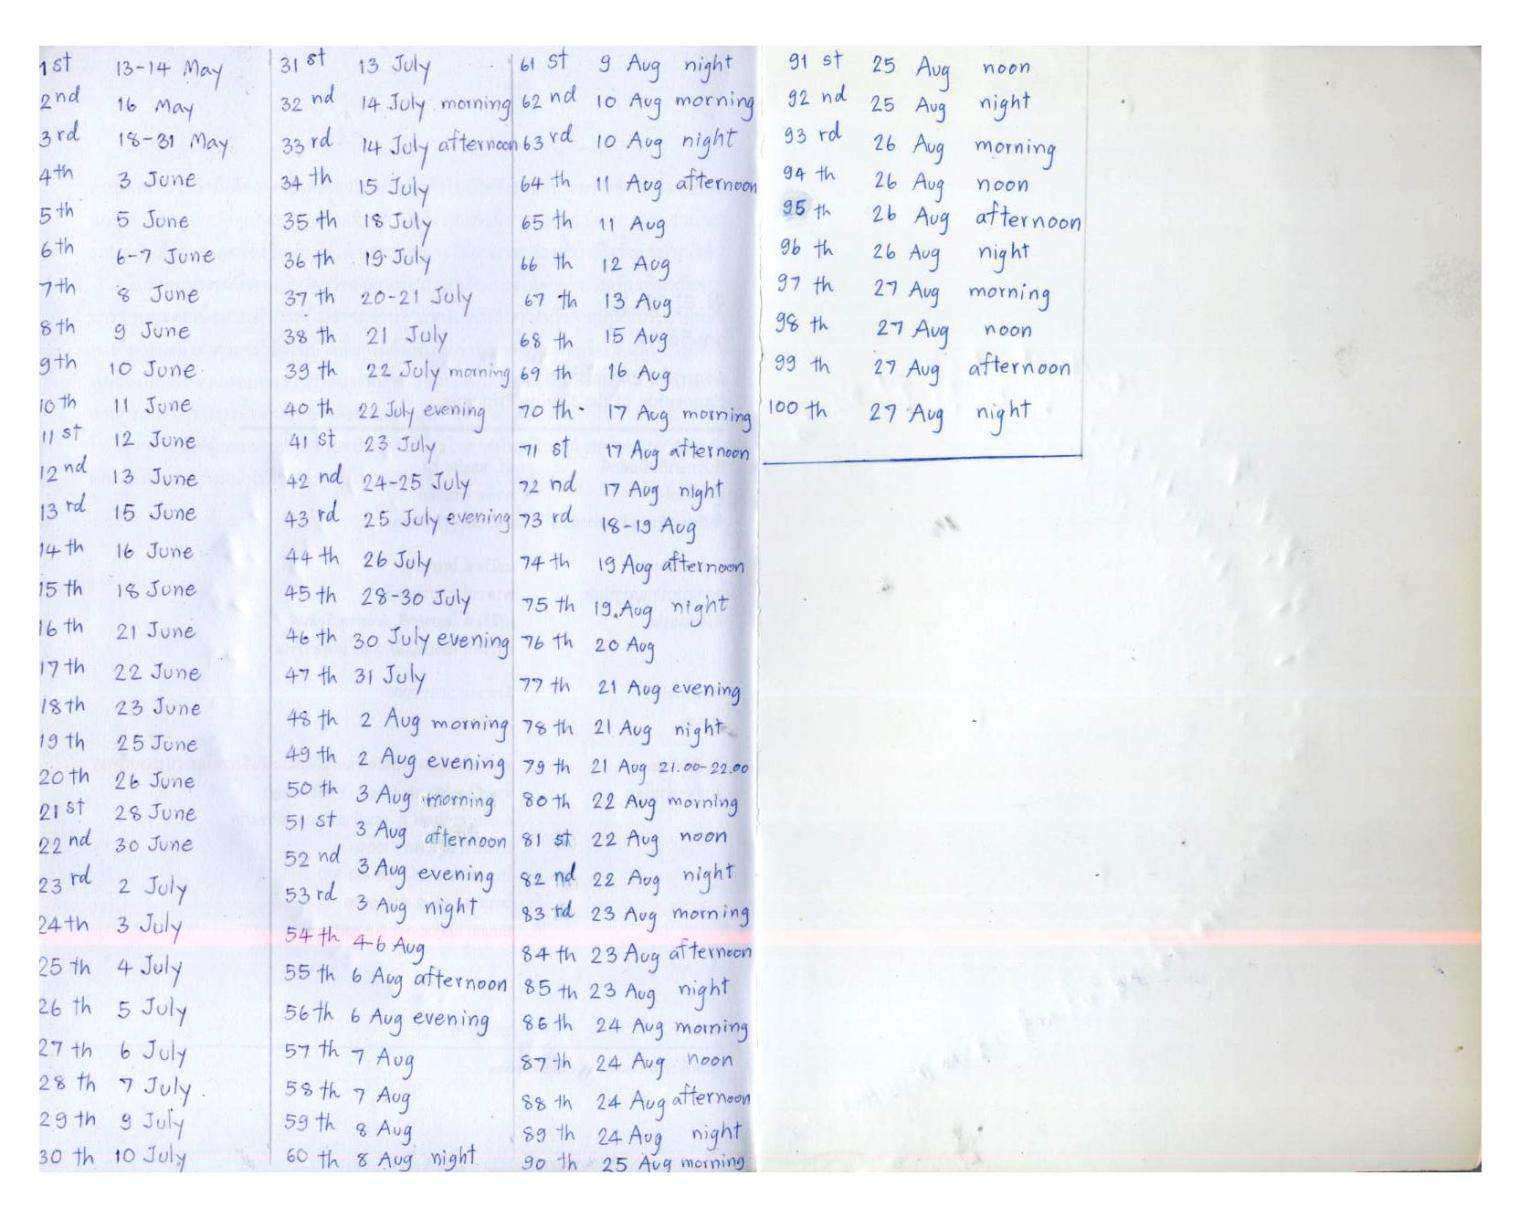 1st 13-14 May
2nd 16 May
3rd 18-31 May
4th 3 June
5th 5 June
6th 6-7 June
7th 8 June
8th 9 June
9th 10 June
10th 11 June
11st 12 June
12nd 13 June
13rd 15 June
14th 16 June
15th 18 June
16th 21 June
17th 22 June
18th 23 June
19th 25 June
20th 26 June
21st 28 June
22nd 30 June
23rd 2 July
24th 3 July
25th 4 July
26th 5 July
27th 6 July
28th 7 July
29th 9 July
30th 10 July
31st 13 July
32nd 14 July morning
33rd 14 July afternoon
34th 15 July
35th 18 July
36th 19 July
37th 20-21 July
38th 21 July
39th 22 July morning
40th 22 July evening
41st 23 July
42nd 24-25 July
43rd 25 July evening
44th 26 July
45th 28-30 July
46th 30 July evening
47th 31 July
48th 2 Aug morning
49th 2 Aug evening
50th 3 Aug morning
51st 3 Aug afternoon
52nd 3 Aug evening
53rd 3 Aug night
54th 4-6 Aug
55th 6 Aug afternoon
56th 6 Aug evening
57th 7 Aug
58th 7 Aug
59th 8 Aug
60th 8 Aug night
61st 9 Aug night
62nd 10 Aug morning
63rd 10 Aug night
64th 11 Aug afternoon
65th 11 Aug
66th 12 Aug
67th 13 Aug
68th 15 Aug
69th 16 Aug
70th 17 Aug morning
71st 17 Aug afternoon
72nd 17 Aug night
73rd 18-19 Aug
74th 19 Aug afternoon
75th 19 Aug night
76th 20 Aug
77th 21 Aug evening
78th 21 Aug night
79th 21 Aug 21.00-22.00
80th 22 Aug morning
81st 22 Aug noon
82nd 22 Aug night
83rd 23 Aug morning
84th 23 Aug afternoon
85th 23 Aug night
86th 24 Aug morning
87th 24 Aug noon
88th 24 Aug afternoon
89th 24 Aug night
90th 25 Aug morning
91st 25 Aug noon
92nd 25 Aug night
93rd 26 Aug morning
94th 26 Aug noon
95th 26 Aug afternoon
96th 26 Aug night
97th 27 Aug morning
98th 27 Aug noon
99th 27 Aug afternoon
100th 27 Aug night